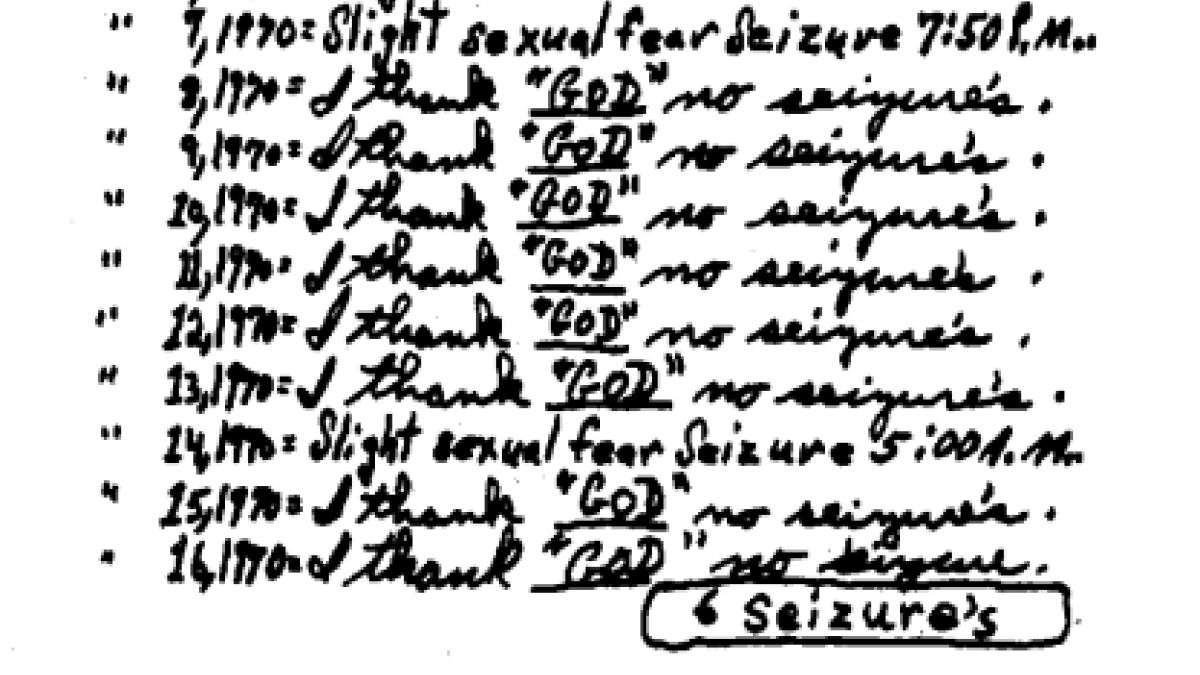 " 7,1970=Slight sexual fear Seizure 7:50 P.M..
" 8,1970=I thank "GOD" no seizure's.
" 9,1970=I thank "GOD" no seizure's.
" 10,1970=I thank "GOD" no seizure's.
" 11,1970=I thank "GOD" no seizure's.
" 12,1970=I thank "GOD" no seizure's.
" 13,1970=I thank "GOD" no seizure's.
" 14,1970=Slight sexual fear Seizure 5:00 A.M..
" 15,1970=I thank "GOD" no seizure's.
" 16,1970=I thank "GOD" no seizure.
6 Seizure's